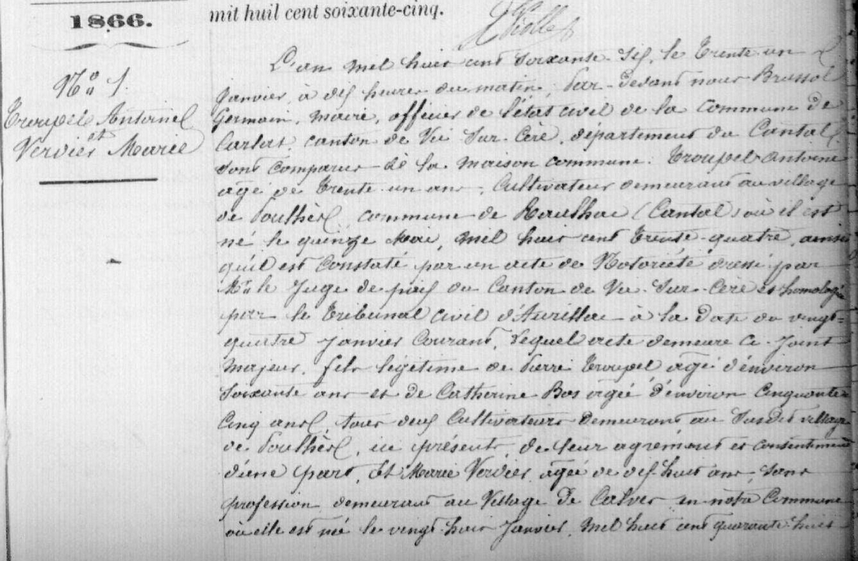 1866.
mil huit cent soixante-cinq.
N° 1.
Troupel Antoine
et
Verdier Marie
L'an mil huit cent soixante six, le trente un
janvier, à dix heures du matin, par-devant nous Brussol
Germain, maire, officier de l'état civil de la commune de
Carlat, canton de Vic-sur-Cère, département du Cantal
sont comparus de la maison commune: Troupel Antoine
agé de trente un ans, cultivateur demeurant au village
de commune de Raulhac (Cantal) où il est
né le quinze Mai, mil huit cent trente-quatre, ainsi
qu'il est constaté par un acte de Notoriété dressé par
Mr. le Juge de paix du Canton de Vic-sur-Cère et homologué
par le Tribunal civil d'Aurillac à la date du vingt-
quatre janvier courant, lequel acte demeure ci-joint
majeur, fils légitime de Pierre Troupel agé d'environ
soixante ans et de Catherine Bos agée d'environ cinquante
cinq ans, tous deux cultivateurs demeurant au susdit village
de ici présents, de leur agrément et consentement
d'une part, Et Marie Verdier, agée de dix huit ans, sans
profession demeurant au village de Calves en notre commune
où elle est née le vingt-huit janvier, mil huit cent quarante-huit